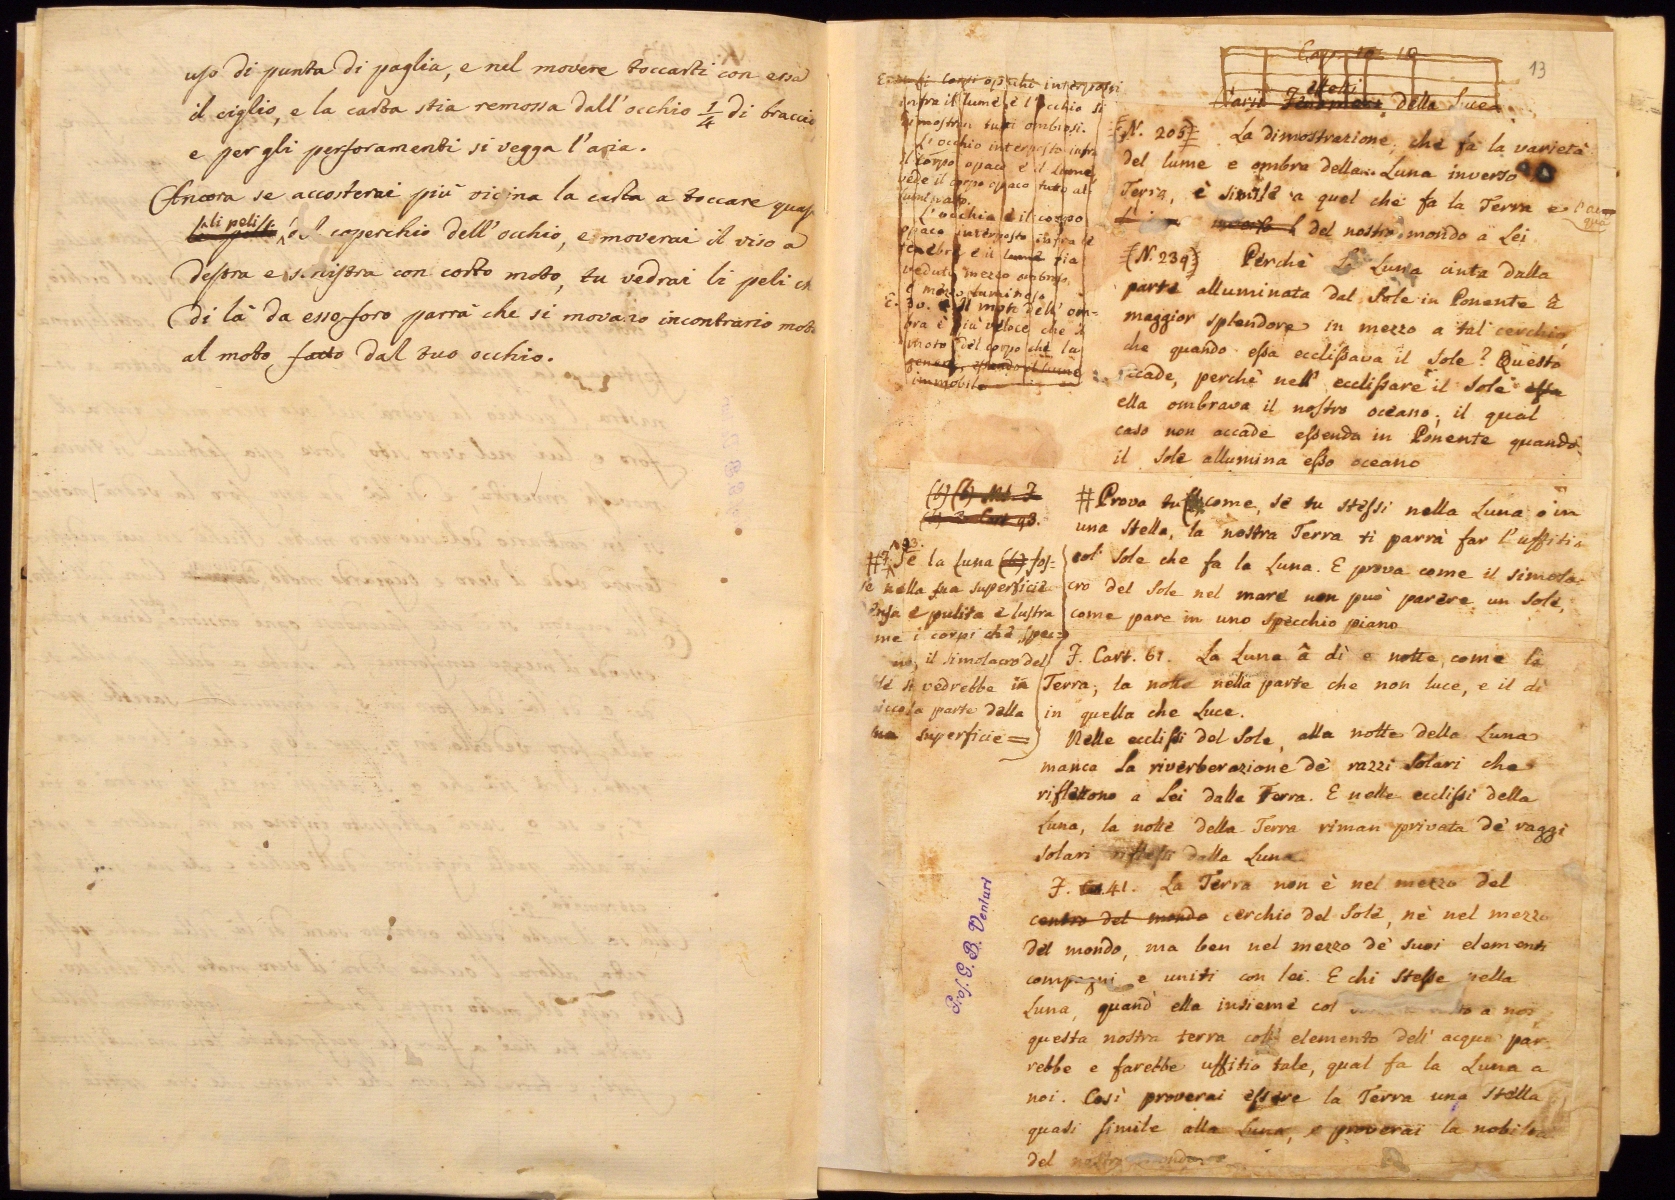 uso di punta di paglia, e nel movere toccarti con essa
il ciglio, e la carta stia remossa dall'occhio 1/4 di braccio
e per gli perforamenti si vegga l'aria.
Ancora se accosterai più vicina la carta a toccare quasi
li peli del coperchio dell'occhio, e moverai il viso a
destra e sinistra con corto moto, tu vedrai li peli ch
di là da esso foro parrà che si movano incontrario moto
al moto fatto dal tuo occhio.
13
Varii della Luce
li corpi opachi interposti
infra il lume è l'occhio si
dimostran tutti ombrosi.
L'occhio interposto infra
il corpo opaco è il lume
vede il corpo opaco tutto al
luminato.
L'occhio è il corpo
opaco interposto infra le
tenebre è il lume fia
veduto mezzo ombroso,
è mezzo luminoso
Il moto dell' om-
bra è più veloce che il
moto del corpo che la
genera, essendo il lume
immobile
N. 205 La dimostrazione, che fa la varietà
del lume e ombra della Luna inverso
Terra, è simile a quel che fa la Terra e l'acqua
del nostro mondo a Lei
N. 239 Perchè la Luna cinta dalla
parte alluminata dal Sole in Ponente à
maggior splendore in mezzo a tal cerchio,
che quando essa ecclissava il Sole? Questo
accade, perchè nell' ecclissare il Sole essa
ella ombrava il nostro oceano; il qual
caso non accade essendo in Ponente quando
il Sole allumina esso oceano
93.
Se la Luna fos-
se nella sua superficie
densa è pulita è lustra
me i corpi che spec-
il simolacro del
si vedrebbe in
piccola parte della
sua superficie =
# Prova tu come, se tu stessi nella Luna o in
una stella, la nostra Terra ti parrà far l'uffitio
col Sole che fa la Luna. E prova come il simola-
cro del Sole nel mare non può parere un Sole,
come pare in uno specchio piano
F. Cart. 61. La Luna à dì e notte, come la
Terra; la notte nella parte che non luce, e il dì
in quella che Luce.
Nelle ecclissi del Sole, alla notte della Luna
manca la riverberazione de' razzi Solari che
riflettono a Lei dalla Terra. E nelle ecclissi della
Luna, la notte della Terra riman privata de' raggi
solari riflessi dalla Luna.
F. 41. La Terra non è nel mezzo del
centro del mondo cerchio del Sole, nè nel mezzo
del mondo, ma ben nel mezzo de' suoi elementi
compagni e uniti con lei. E chi stesse nella
Luna, quand' ella insieme col a noi,
questa nostra terra coll' elemento dell' acqua par-
rebbe e farebbe uffitio tale, qual fa la Luna a
noi. Così proverai essere la Terra una stella
quasi simile alla Luna, e proverai la nobiltà
del nostro mondo
Prof. G. B. Venturi